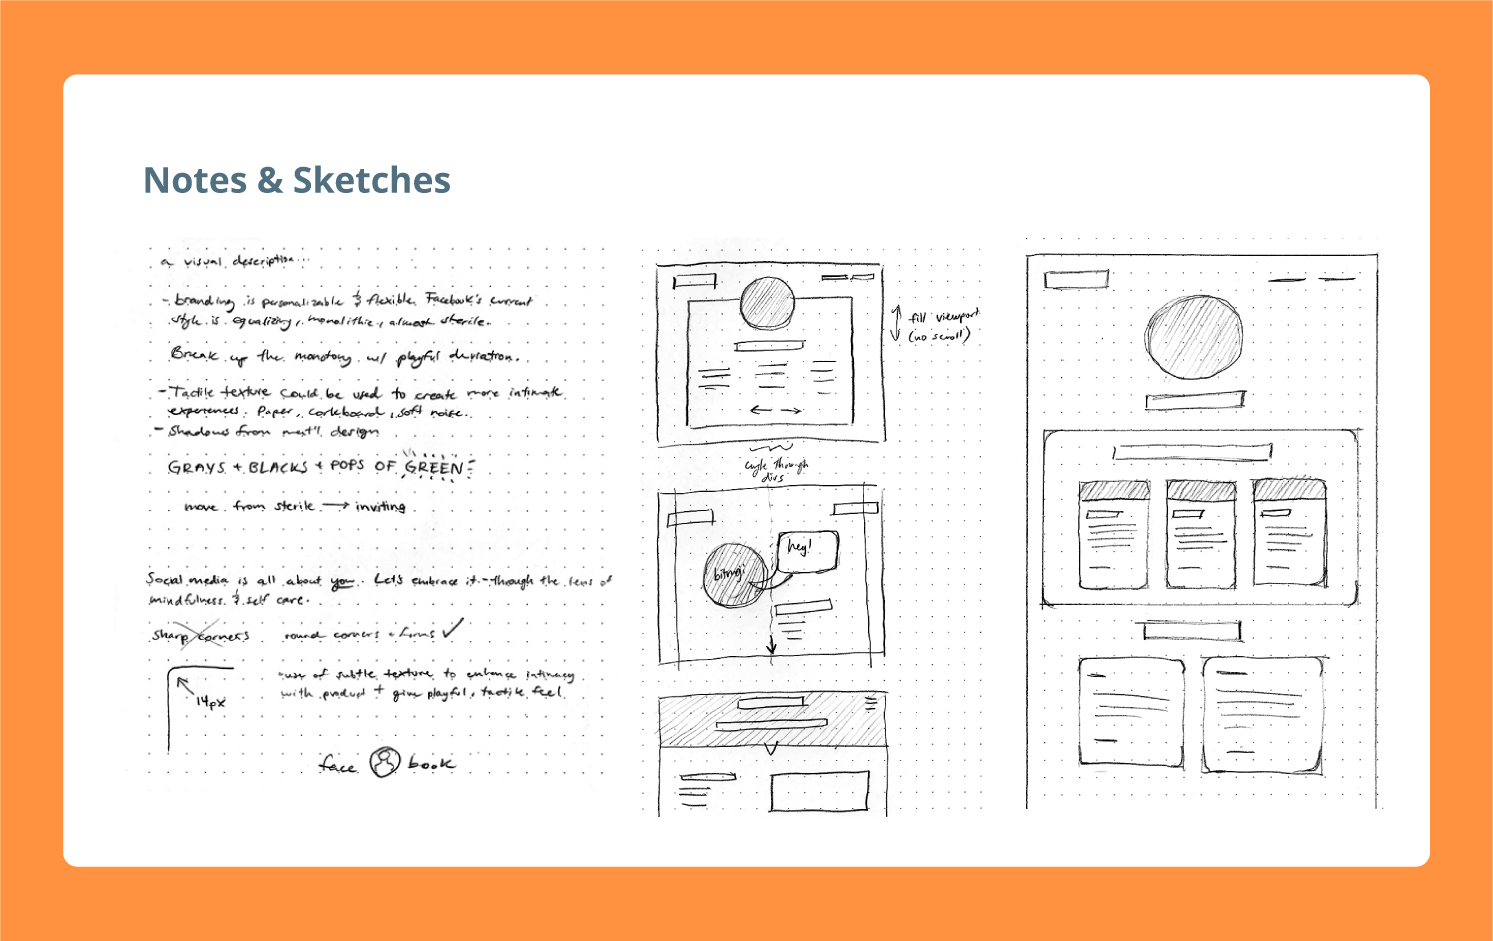 Notes & Sketches
a visual description...
- branding is personalizable & flexible. Facebook's current
style is equalizing, monolithic, almost sterile.
Break up the monotony w/ playful deviation.
- Tactile texture could be used to create more intimate
experiences. Paper, corkboard, soft noise.
- Shadows from mat'l design
GRAYS + BLACKS + POPS OF GREEN
move from sterile → inviting
Social media is all about you. Let's embrace it - through the lens of
mindfulness & self care.
sharp corners round corners + forms ✓
14px
- use of subtle texture to enhance intimacy
with product + give playful, tactile feel
face book
fill viewport
(no scroll)
cycle through
divs
hey!
bitmoji